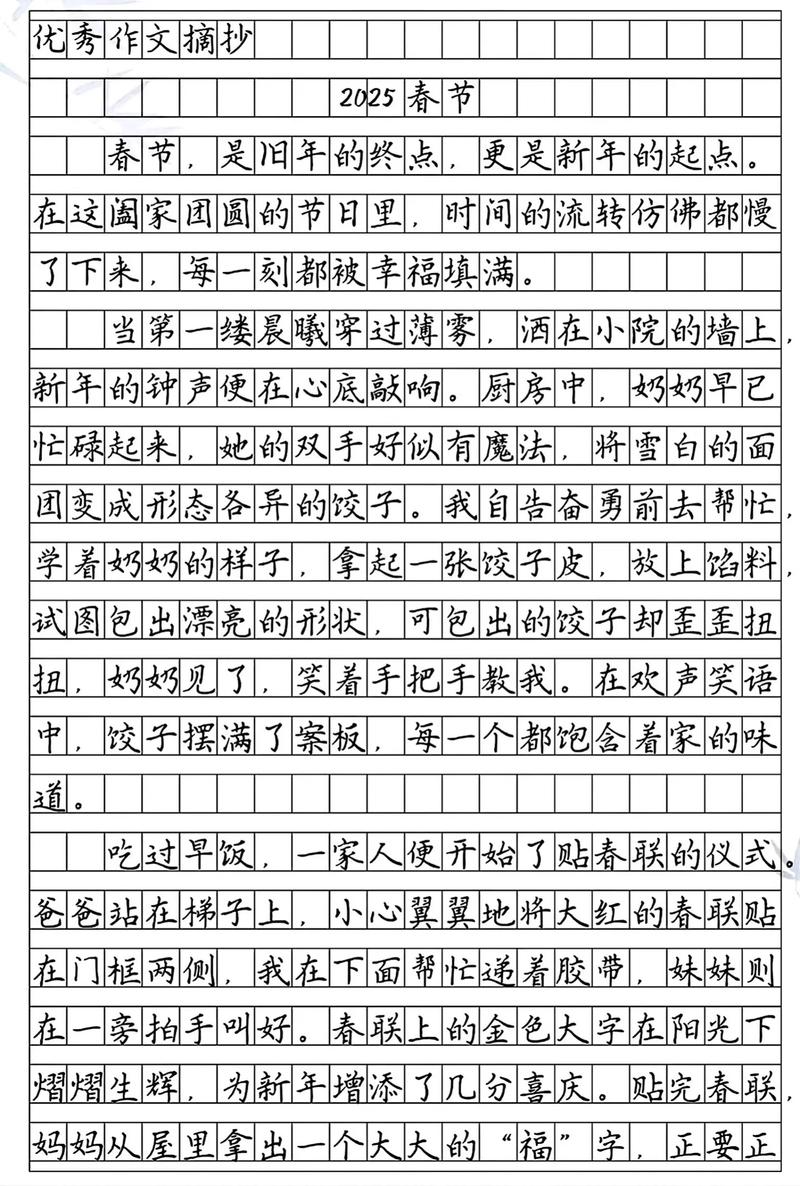 优秀作文摘抄
2025春节
春节，是旧年的终点，更是新年的起点。
在这阖家团圆的节日里，时间的流转仿佛都慢
了下来，每一刻都被幸福填满。
当第一缕晨曦穿过薄雾，洒在小院的墙上，
新年的钟声便在心底敲响。厨房中，奶奶早已
忙碌起来，她的双手好似有魔法，将雪白的面
团变成形态各异的饺子。我自告奋勇前去帮忙，
学着奶奶的样子，拿起一张饺子皮，放上馅料，
试图包出漂亮的形状，可包出的饺子却歪歪扭
扭，奶奶见了，笑着手把手教我。在欢声笑语
中，饺子摆满了案板，每一个都饱含着家的味
道。
吃过早饭，一家人便开始了贴春联的仪式。
爸爸站在梯子上，小心翼翼地将大红的春联贴
在门框两侧，我在下面帮忙递着胶带，妹妹则
在一旁拍手叫好。春联上的金色大字在阳光下
熠熠生辉，为新年增添了几分喜庆。贴完春联，
妈妈从屋里拿出一个大大的“福”字，正要正